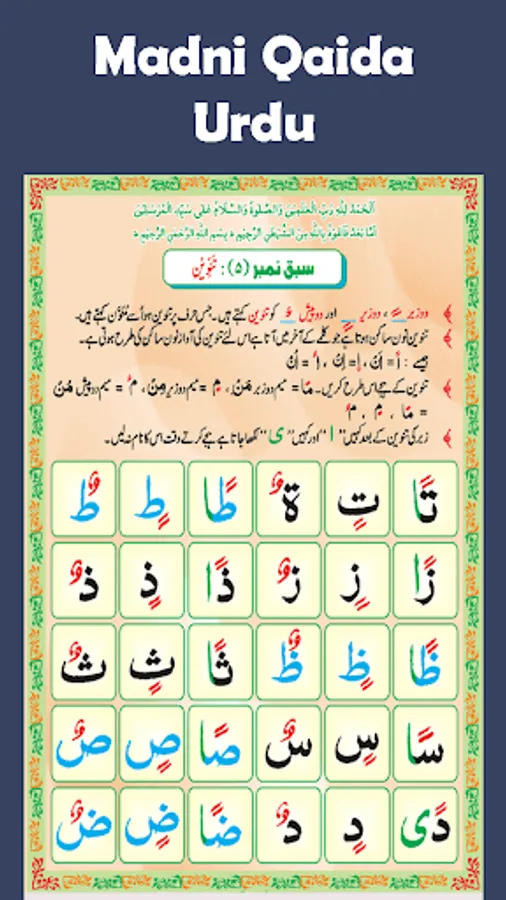 Madni Qaida
Urdu
اَلْحَمْدُ لِلّٰہِ رَبِّ الْعٰلَمِیْنَ وَالصَّلٰوۃُ وَالسَّلَامُ عَلٰی سَیِّدِ الْمُرْسَلِیْنَ
اَمَّا بَعْدُ فَاَعُوْذُ بِاللّٰہِ مِنَ الشَّیْطٰنِ الرَّجِیْمِ ؕ بِسْمِ اللّٰہِ الرَّحْمٰنِ الرَّحِیْمِ ؕ
سبق نمبر (۵) : تَنْوِیْن
دو زبر ـً ، دو زیر ـٍ اور دو پیش ـٌ کو تنوین کہتے ہیں۔ جس حرف پر تنوین ہو اُسے مُنَوَّن کہتے ہیں۔
تنوین نون ساکن ہوتا ہے جو کلمے کے آخر میں آتا ہے اس لئے تنوین کی آواز نون ساکن کی طرح ہوتی ہے۔
جیسے : اً = اَنْ ، اٍ = اِنْ ، اٌ = اُنْ
تنوین کے ہجے اس طرح کریں۔ مًا = میم دو زبر مَنْ ، مٍ = میم دو زیر مِنْ ، مٌ = میم دو پیش مُنْ
= مًا ، مٍ ، مٌ
زبر کی تنوین کے بعد کہیں "ا" اور کہیں "ی" لکھا جاتا ہے ہجے کرتے وقت اس کا نام نہ لیں۔
تًا تٍ ةٌ طًا طٍ طٌ
زًا زٍ زٌ ذًا ذٍ ذٌ
ظًا ظٍ ظٌ ثًا ثٍ ثٌ
سًا سٍ سٌ صًا صٍ صٌ
دًی دٍ دٌ ضًا ضٍ ضٌ